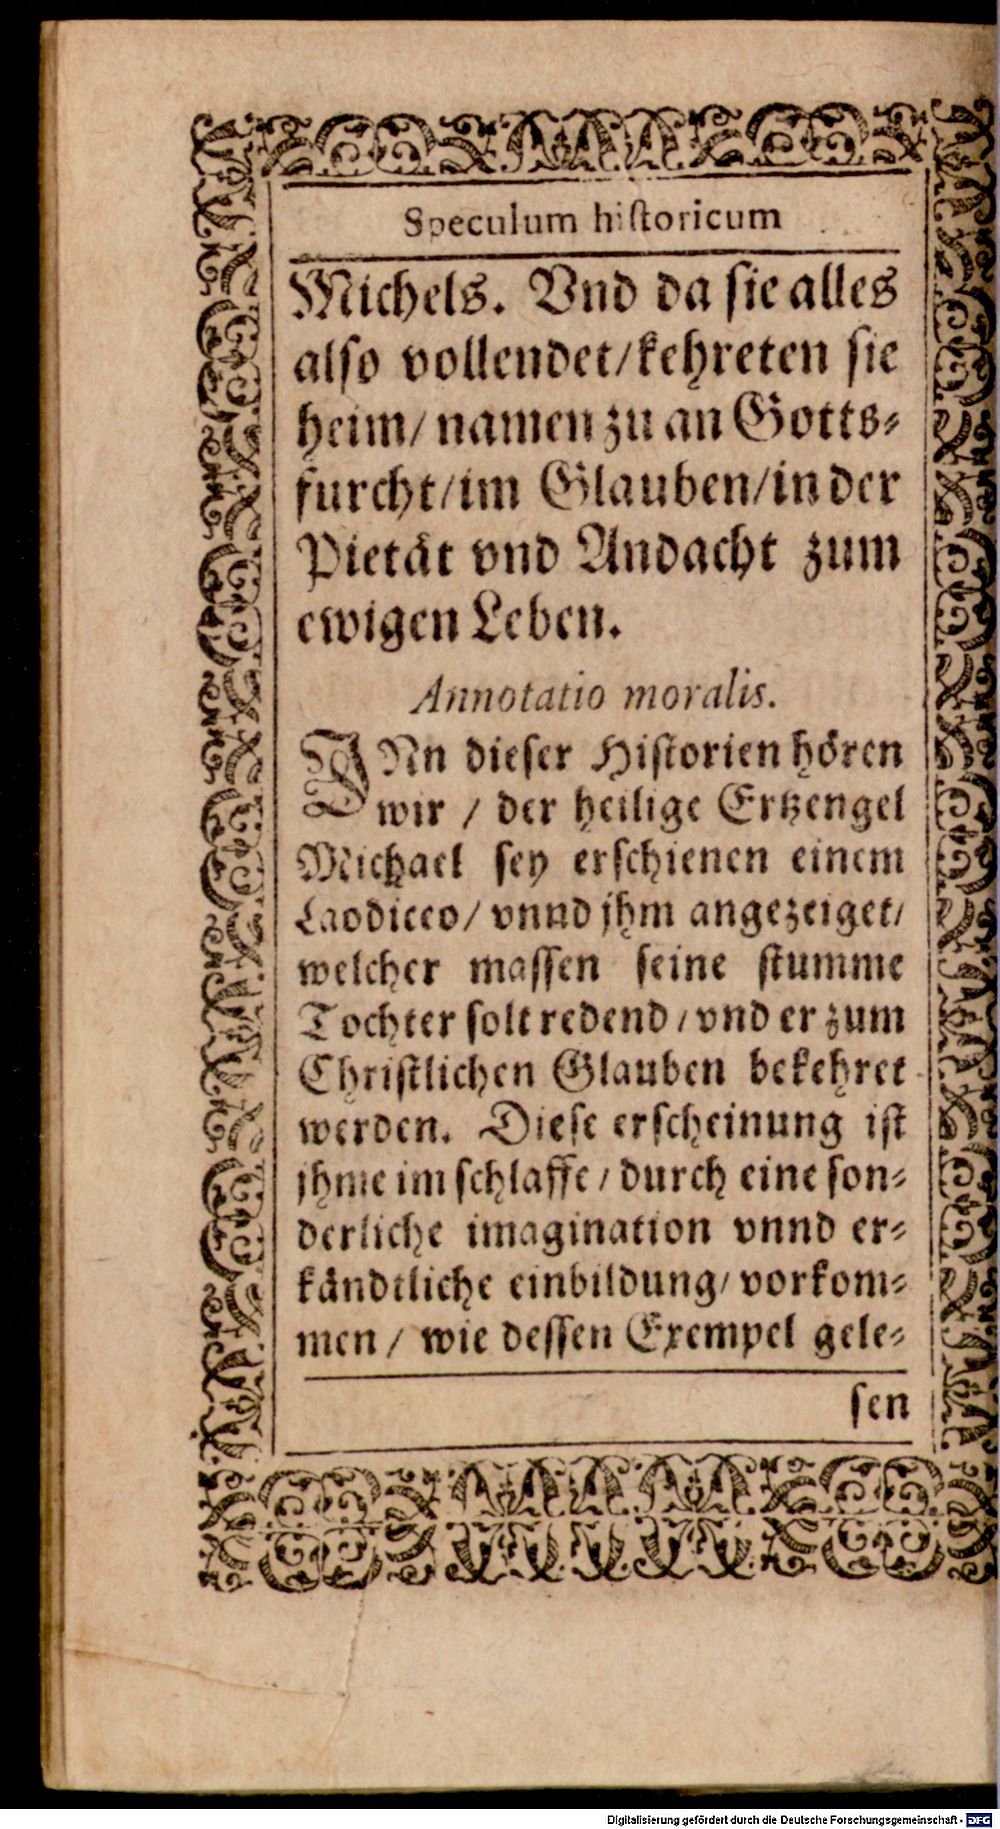 Speculum hiſtoricum
Michels. Vnd da ſie alles
alſo vollendet/kehreten ſie
heim/ namen zu an Gotts⸗
furcht/im Glauben/in der
Pietät vnd Andacht zum
ewigen Leben.
Annotatio moralis.
JNn dieſer Hiſtorien hören
wir / der heilige Ertzengel
Michael ſey erſchienen einem
Laodiceo/ vnnd jhm angezeiget/
welcher maſſen ſeine ſtumme
Tochter ſolt redend / vnd er zum
Chriſtlichen Glauben bekehret
werden. Dieſe erſcheinung iſt
jhme im ſchlaffe / durch eine ſon⸗
derliche imagination vnnd er⸗
kändtliche einbildung/ vorkom⸗
men / wie deſſen Exempel gele⸗
ſen
Digitalisierung gefördert durch die Deutsche Forschungsgemeinschaft - DFG